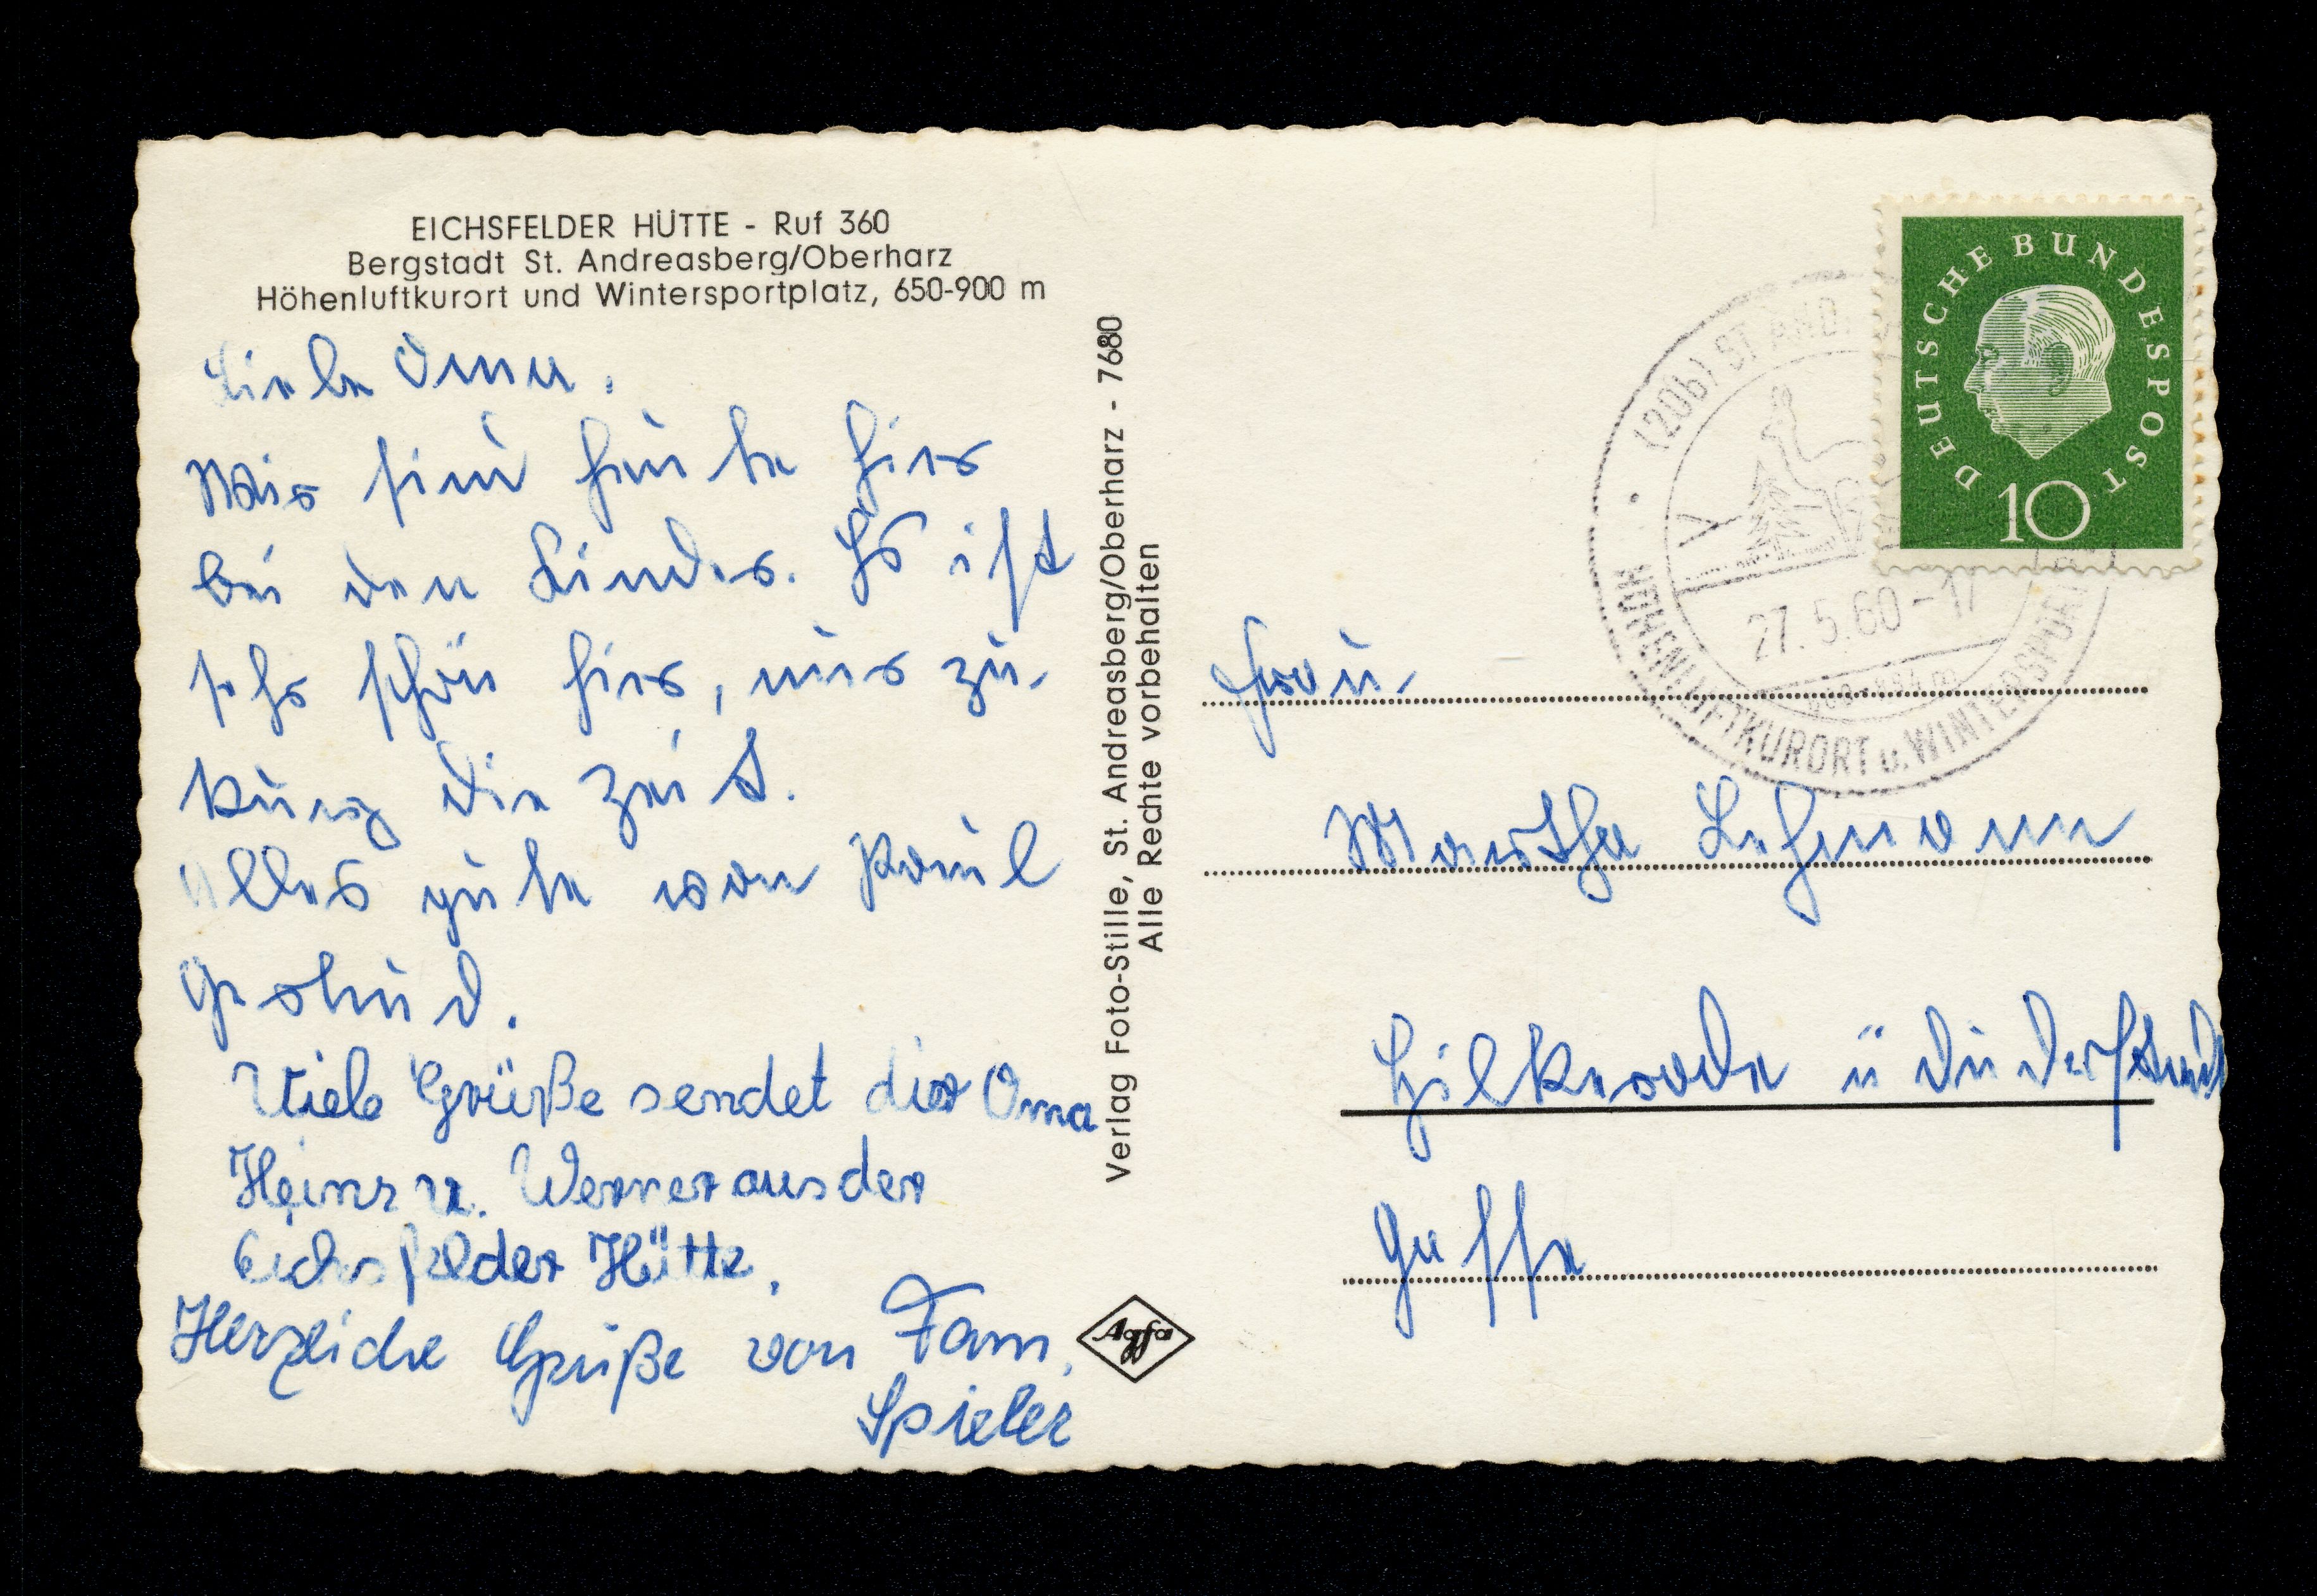 EICHSFELDER HÜTTE - Ruf 360
Bergstadt St. Andreasberg/Oberharz
Höhenluftkurort und Wintersportplatz, 650-900 m
Liebe Oma.
Wir sind heute hier
bei den Kinder. Es ist
sehr schön hier, nur zu
kurz die Zeit.
Alles gute von Paul
Gertrud.
Viele Grüße sendet dir Oma
Heinz u. Werner aus der
Eichsfelder Hütte.
Herzliche Grüße von Fam.
Spieler
Verlag Foto-Stille, St. Andreasberg/Oberharz - 7680
Alle Rechte vorbehalten
Agfa
DEUTSCHE BUNDESPOST
10
(20b) ST. AND
27.5.60-17
HÖHENLUFTKURORT u. WINTERSPORT
Frau
Martha Lehmann
Hilkerode ü Duderstadt
Gasse